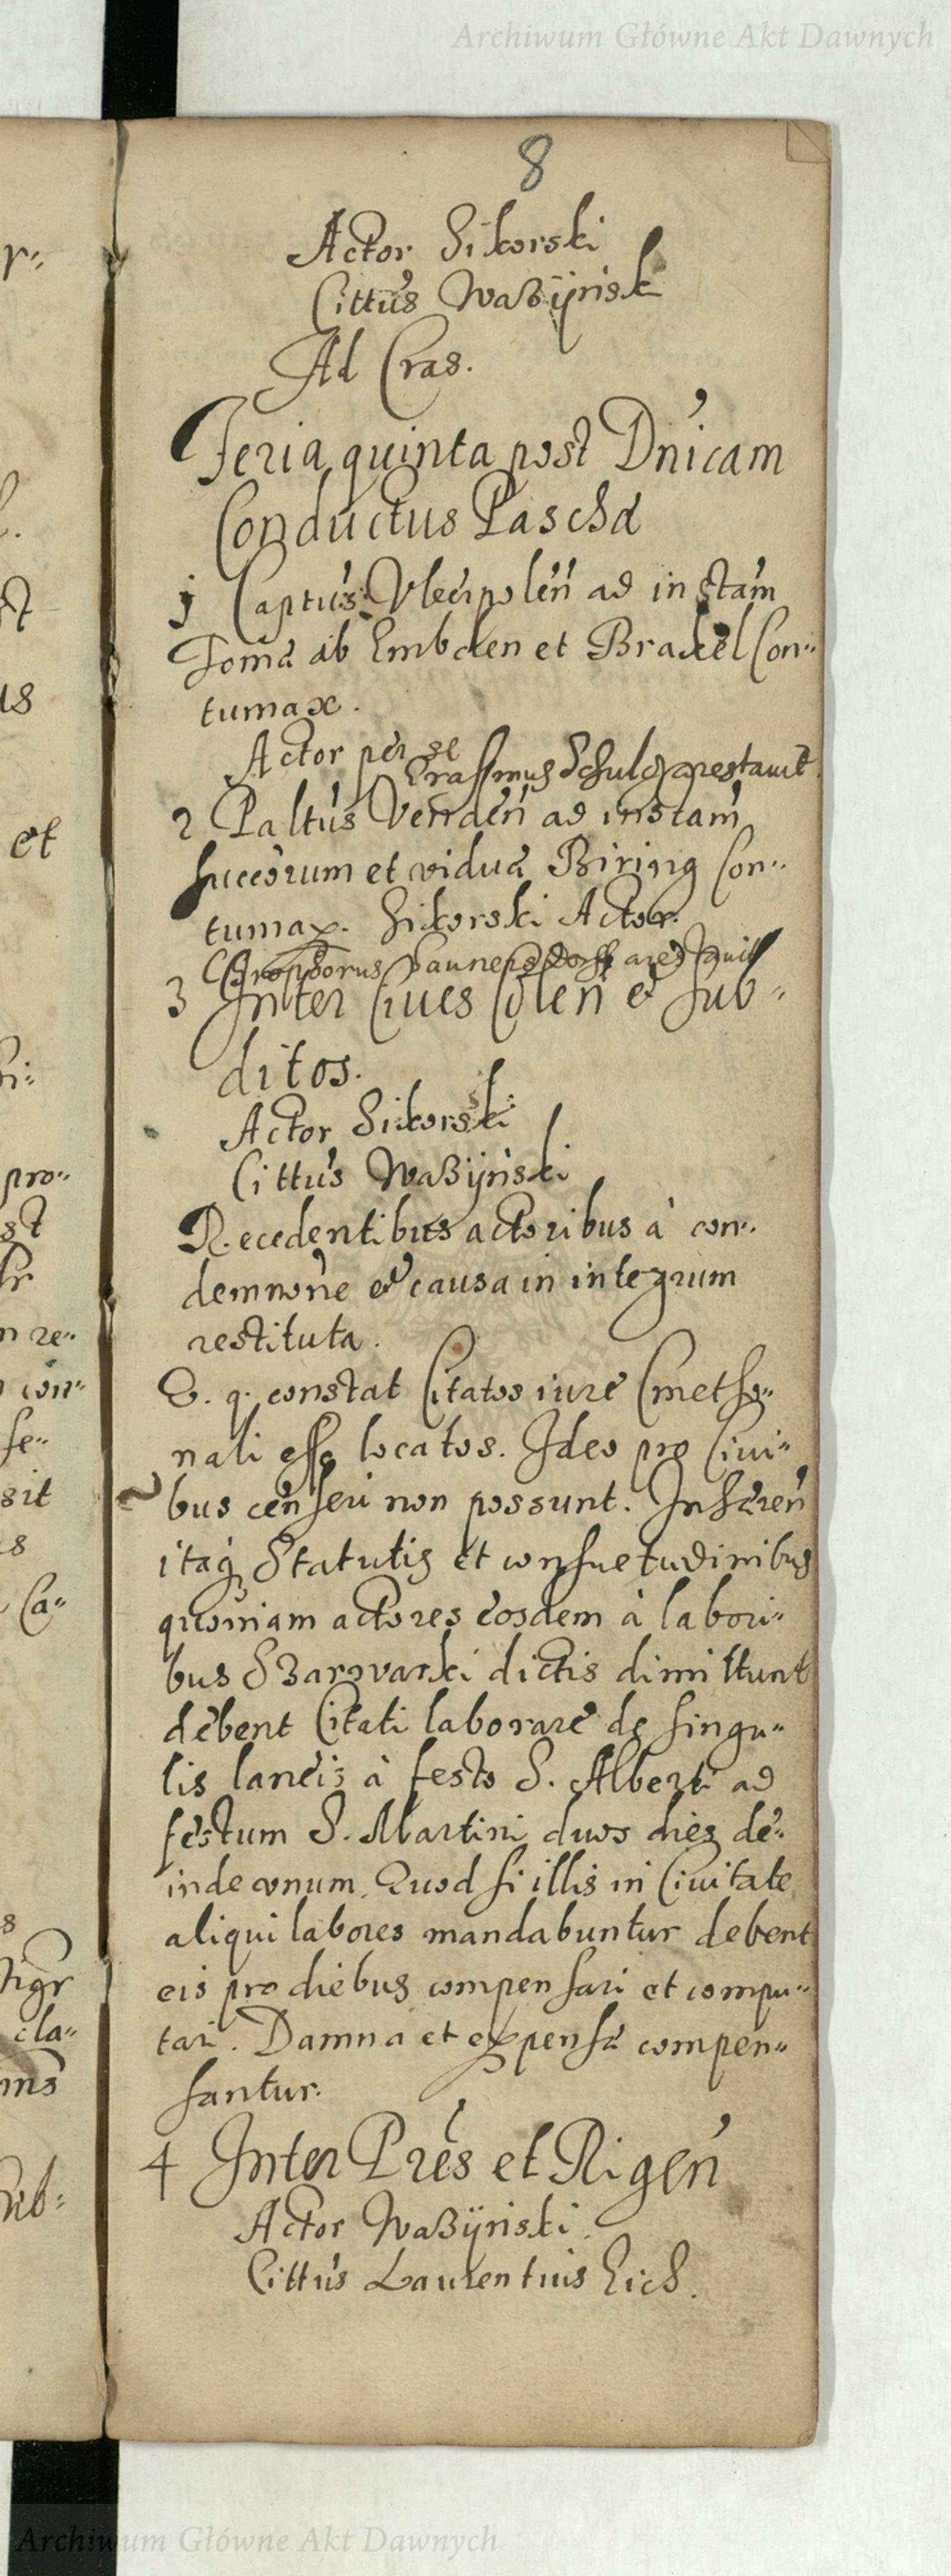 Archiwum Główne Akt Dawnych
8
Actor Sikorski
Cittus Waßÿnsk
Ad Cras.
Feria quinta post Dnicam
Conductus Pascha
1 Captus ad instam
Toma ab Embden et Brakel Con-
tumax.
Actor per se
Erassmus Schulcz arestauit
2 Paltus Venden ad instam
succorum et vidua Biring Con-
tumax. Sikorski Actor.
arestauit
3 Inter Ciues et sub-
ditos.
Actor Sikorski
Cittus Waßÿnski
Recedentibus actoribus à con-
demnone et causa in integrum
restituta.
E. q. constat Citatos iure Cmetho-
nali esse locatos. Ideo pro Ciui-
bus censeri non possunt. Inhæren
itaq Statutis et consuetudinibus
quoniam actores eosdem à labori-
bus Szarwarki dictis dimittunt
debent Citati laborare de singu-
lis laneis à festo S. Alberti ad
festum S. Martini duos dies de-
inde vnum. Quod si illis in Ciuitate
aliqui labores mandabuntur debent
eis pro diebus compensari et compu-
tari. Damna et expensa compen-
santur.
4 Inter Pres et Rigen
Actor Waßÿnski.
Cittus Laurentius Eich.
Archiwum Główne Akt Dawnych